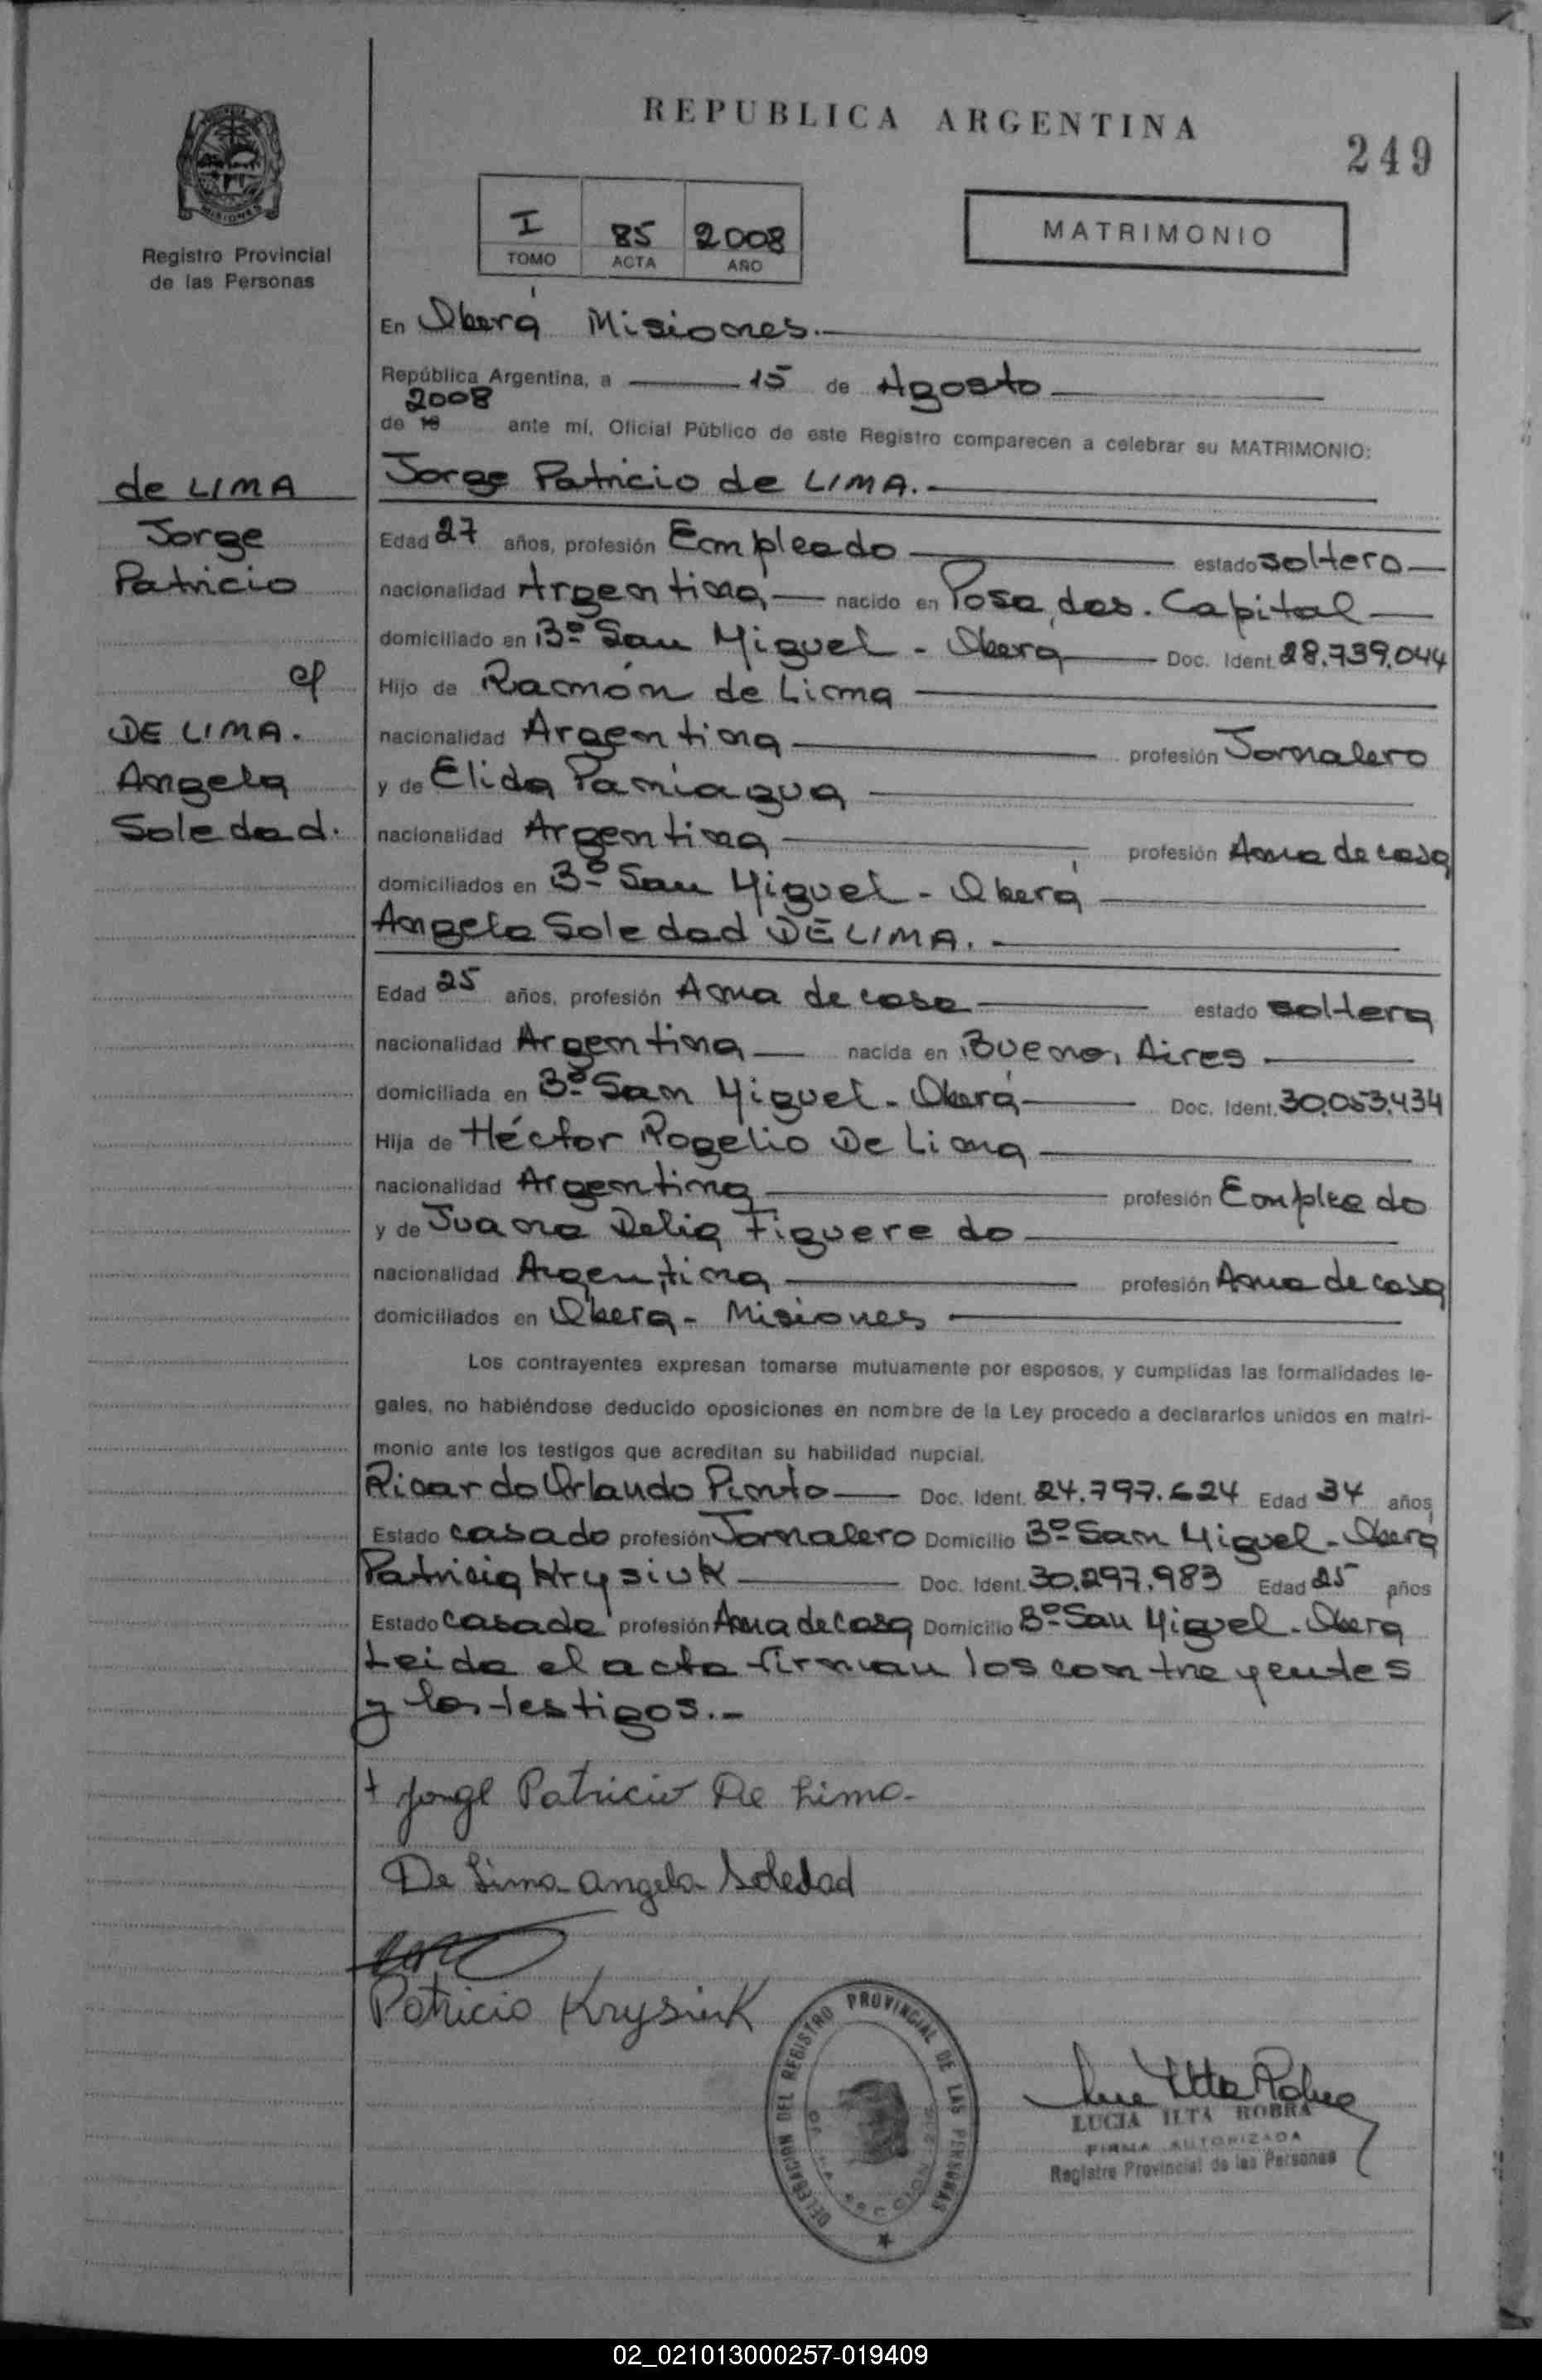 REPUBLICA ARGENTINA
249
MISIONES
Registro Provincial
de las Personas
I 85 2008
TOMO ACTA AÑO
MATRIMONIO
En Oberá Misiones.
República Argentina, a 15 de Agosto
2008
de 19 ante mí, Oficial Público de este Registro comparecen a celebrar su MATRIMONIO:
de LIMA
Jorge
Patricio
c/
DE LIMA.
Angela
Soledad.
Jorge Patricio de LIMA.
Edad 27 años, profesión Empleado estado soltero
nacionalidad Argentina nacido en Posadas. Capital
domiciliado en Bº San Miguel - Oberá Doc. Ident. 28.739.044
Hijo de Ramón de Lima
nacionalidad Argentina profesión Jornalero
y de Elida Paniagua
nacionalidad Argentina profesión Ama de casa
domiciliados en Bº San Miguel - Oberá
Angela Soledad DE LIMA.
Edad 25 años, profesión Ama de casa estado soltera
nacionalidad Argentina nacida en Buenos Aires
domiciliada en Bº San Miguel - Oberá Doc. Ident. 30.053.434
Hija de Héctor Rogelio De Lima
nacionalidad Argentina profesión Empleado
y de Juana Delia Figueredo
nacionalidad Argentina profesión Ama de casa
domiciliados en Oberá - Misiones
Los contrayentes expresan tomarse mutuamente por esposos, y cumplidas las formalidades le-
gales, no habiéndose deducido oposiciones en nombre de la Ley procedo a declararlos unidos en matri-
monio ante los testigos que acreditan su habilidad nupcial.
Ricardo Orlando Pinto Doc. Ident. 24.797.624 Edad 34 años
Estado casado profesión Jornalero Domicilio Bº San Miguel - Oberá
Patricia Krysiuk Doc. Ident. 30.297.983 Edad 25 años
Estado casada profesión Ama de casa Domicilio Bº San Miguel - Oberá
Leida el acta firman los contrayentes
y los testigos.-
+ Jorge Patricio De Lima
De Lima angela Soledad
Patricia Krysiuk
DELEGACION DEL REGISTRO PROVINCIAL DE LAS PERSONAS
LUCIA ILTA ROBRA
FIRMA AUTORIZADA
Registro Provincial de las Personas
02_021013000257-019409